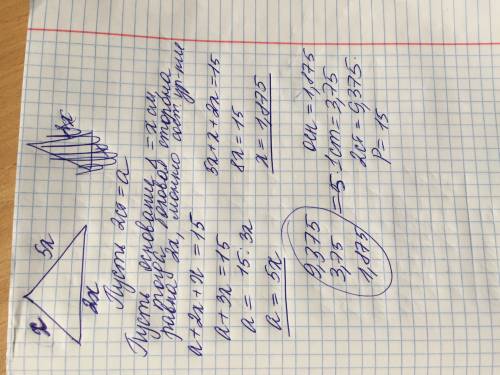 x
5x
2x
Пусть 2ст = a
Пусть основание = x см,
тогда боковая сторона
равна 2x, можно сост ур-ние
a + 2x + x = 15
a + 3x = 15
a = 15 · 3x
a = 5x
5x + x + 2x = 15
8x = 15
x = 1,875
9,375
3,75
1,875
= 5
осн = 1,875
1ст = 3,75
2ст = 9,375
P = 15